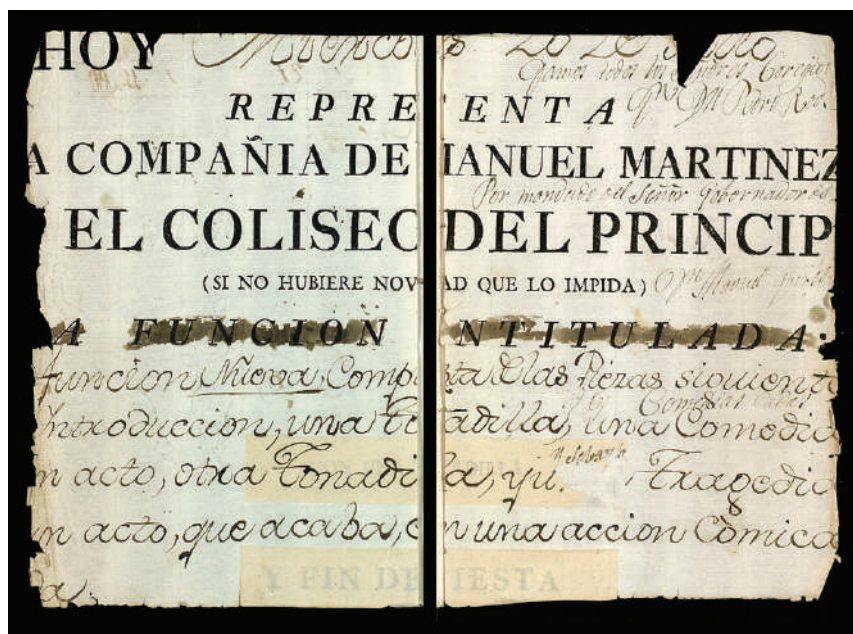 HOY Miercoles 20 de Julio
REPRE ENTA
A COMPAÑIA DE IANUEL MARTINEZ
Por mandado del Señor Gobernador
EL COLISEO DEL PRINCIP
(SI NO HUBIERE NOV AD QUE LO IMPIDA)
A FUNCION NTITULADA:
funcion Nueva, Comp ta de las Piezas siguiente
Introduccion, una To adilla, una Comedia
n acto, otra Tonadi la, y u. Tragedia
n acto, que acaba, c n una accion Comica
da.
Y FIN DE IESTA